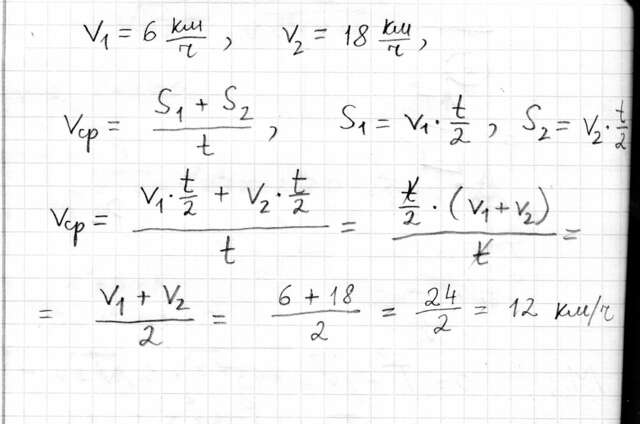 V₁ = 6 км/ч, V₂ = 18 км/ч,
Vср = (S₁ + S₂)/t, S₁ = V₁ · t/2, S₂ = V₂ · t/2
Vср = (V₁ · t/2 + V₂ · t/2)/t = (t/2 · (V₁ + V₂))/t =
= (V₁ + V₂)/2 = (6 + 18)/2 = 24/2 = 12 км/ч